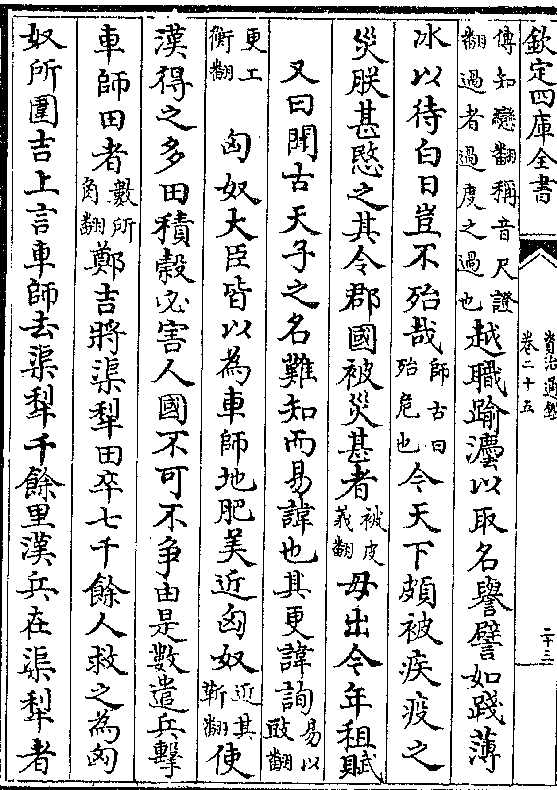 欽定四庫全書
資治通鑑
卷二十五
二十三
傳知戀翻稱音尺證翻過者過度之過也越職踰灋以取名譽譬如踐薄
冰以待白日豈不殆哉師古曰殆危也今天下頗被疾疫之
災朕甚愍之其令郡國被災甚者被皮義翻毋出今年租賦
又曰聞古天子之名難知而易諱也其更諱詢易以豉翻
更工衡翻 匈奴大臣皆以為車師地肥美近匈奴近其靳翻使
漢得之多田積穀必害人國不可不爭由是數遣兵擊
車師田者數所角翻鄭吉將渠犁田卒七千餘人救之為匈
奴所圍吉上言車師去渠犁千餘里漢兵在渠犁者